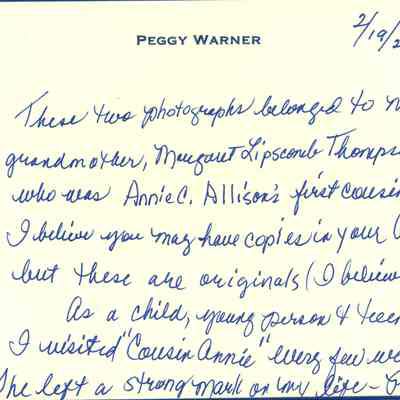 PEGGY WARNER
2/19/2
These two photographs belonged to m
grandmother, Margaret Lipscomb Thomps
who was Annie C. Allison's first cousin
I believe you may have copies in your
but these are originals (I believe
As a child, young person & teen
I visited "Cousin Annie" every few we
She left a strong mark on my life –